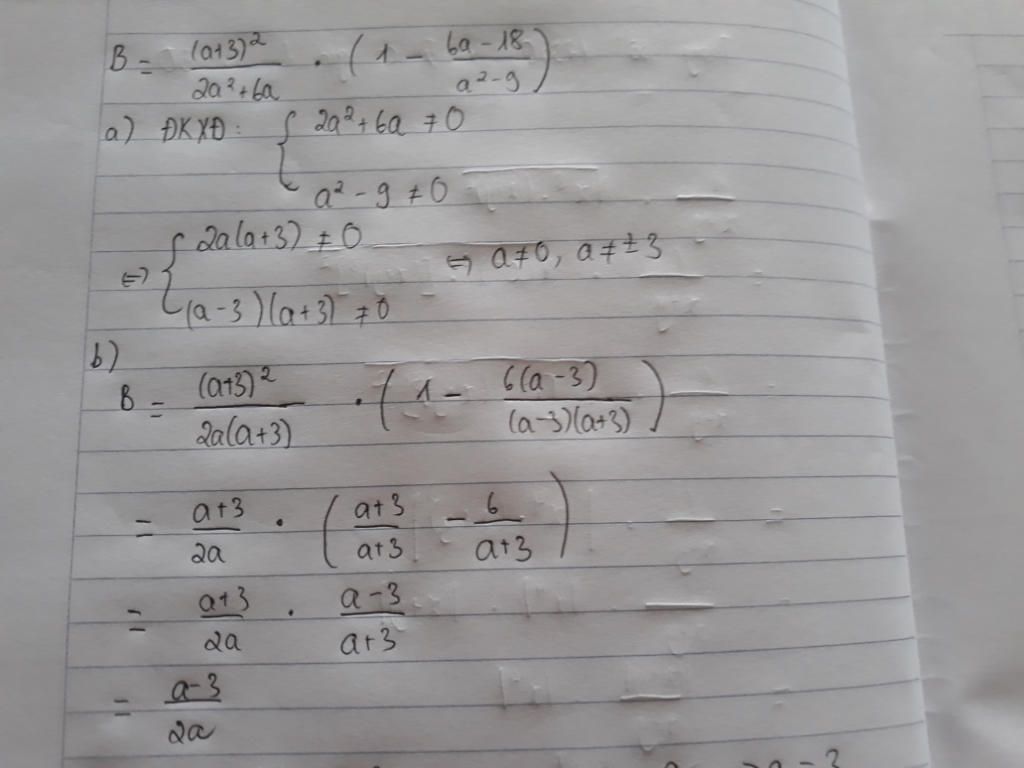 B = (a+3)²/(2a²+6a) · (1 - (6a-18)/(a²-9))
a) ĐKXĐ: { 2a²+6a ≠ 0
a² - 9 ≠ 0
⇔ { 2a(a+3) ≠ 0 ⇔ a ≠ 0, a ≠ ±3
(a-3)(a+3) ≠ 0
b)
B = (a+3)²/(2a(a+3)) · (1 - 6(a-3)/((a-3)(a+3)))
= (a+3)/(2a) · ((a+3)/(a+3) - 6/(a+3))
= (a+3)/(2a) · (a-3)/(a+3)
= (a-3)/(2a)